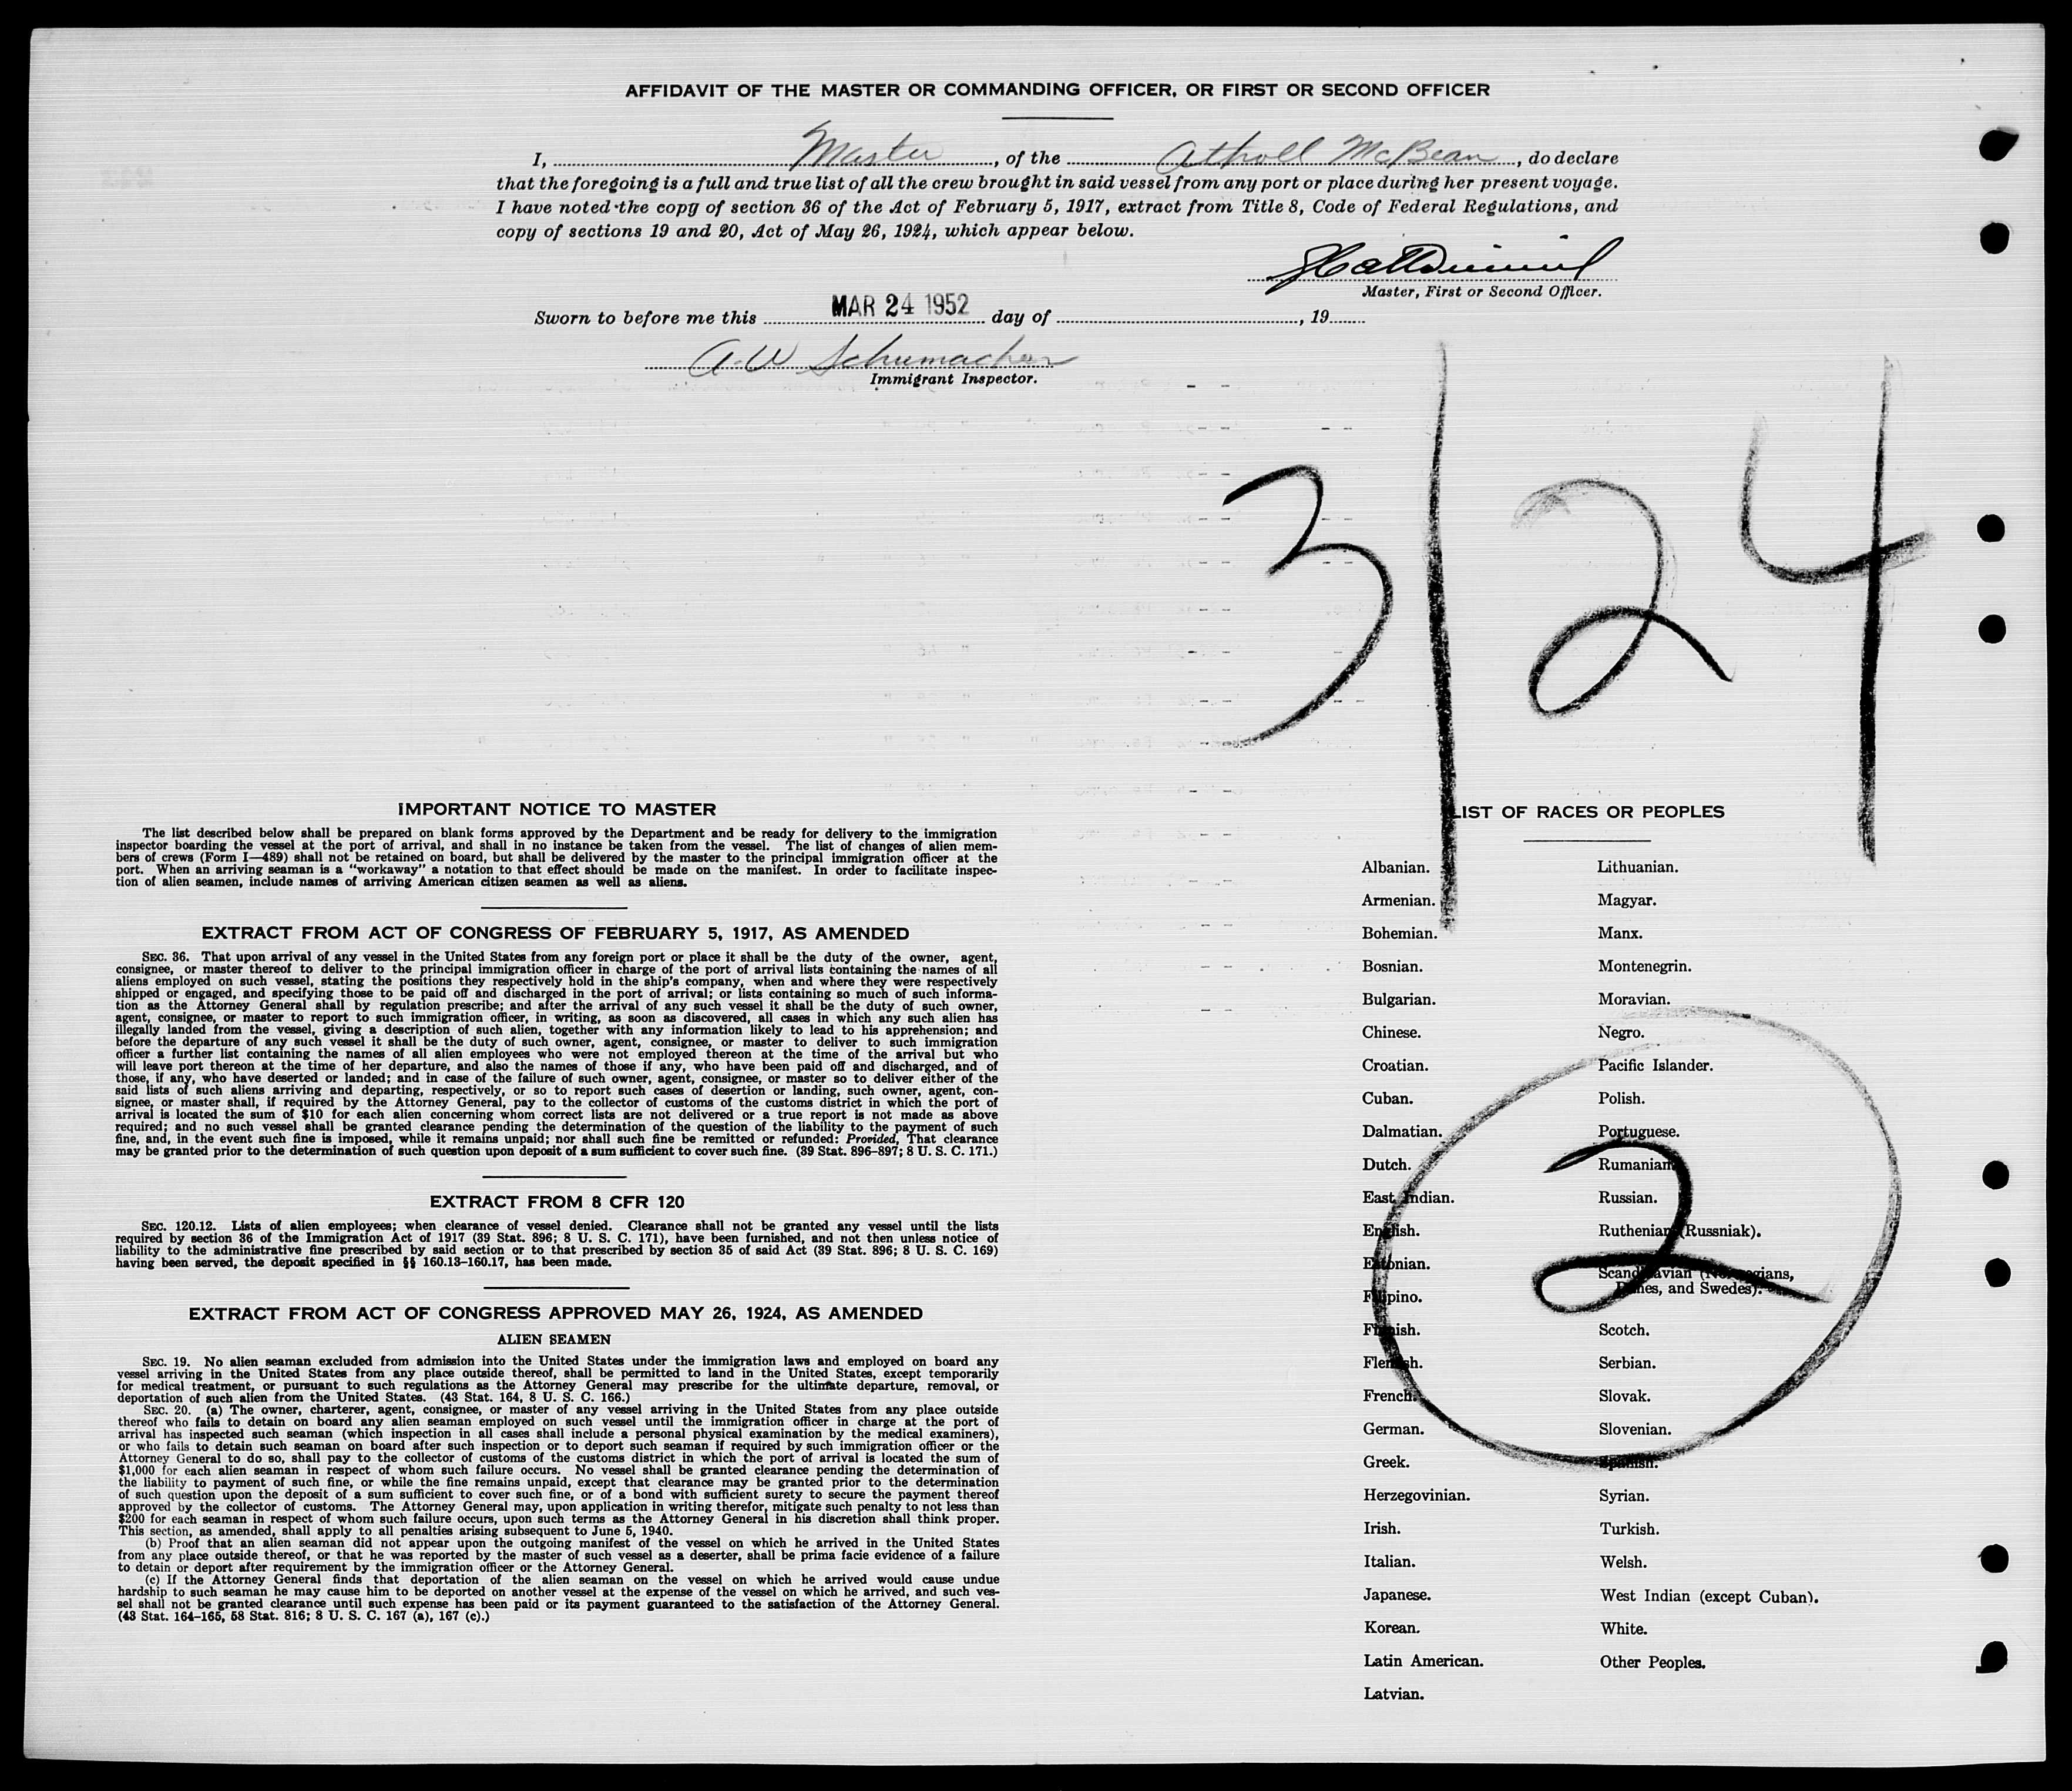 AFFIDAVIT OF THE MASTER OR COMMANDING OFFICER, OR FIRST OR SECOND OFFICER
I, Master, of the Atholl McBean, do declare
that the foregoing is a full and true list of all the crew brought in said vessel from any port or place during her present voyage.
I have noted the copy of section 36 of the Act of February 5, 1917, extract from Title 8, Code of Federal Regulations, and
copy of sections 19 and 20, Act of May 26, 1924, which appear below.
Master, First or Second Officer.
Sworn to before me this MAR 24 1952 day of , 19
A. W Schumacher
Immigrant Inspector.
3/24
IMPORTANT NOTICE TO MASTER
The list described below shall be prepared on blank forms approved by the Department and be ready for delivery to the immigration
inspector boarding the vessel at the port of arrival, and shall in no instance be taken from the vessel. The list of changes of alien mem-
bers of crews (Form I—489) shall not be retained on board, but shall be delivered by the master to the principal immigration officer at the
port. When an arriving seaman is a "workaway" a notation to that effect should be made on the manifest. In order to facilitate inspec-
tion of alien seamen, include names of arriving American citizen seamen as well as aliens.
EXTRACT FROM ACT OF CONGRESS OF FEBRUARY 5, 1917, AS AMENDED
SEC. 36. That upon arrival of any vessel in the United States from any foreign port or place it shall be the duty of the owner, agent,
consignee, or master thereof to deliver to the principal immigration officer in charge of the port of arrival lists containing the names of all
aliens employed on such vessel, stating the positions they respectively hold in the ship's company, when and where they were respectively
shipped or engaged, and specifying those to be paid off and discharged in the port of arrival; or lists containing so much of such informa-
tion as the Attorney General shall by regulation prescribe; and after the arrival of any such vessel it shall be the duty of such owner,
agent, consignee, or master to report to such immigration officer, in writing, as soon as discovered, all cases in which any such alien has
illegally landed from the vessel, giving a description of such alien, together with any information likely to lead to his apprehension; and
before the departure of any such vessel it shall be the duty of such owner, agent, consignee, or master to deliver to such immigration
officer a further list containing the names of all alien employees who were not employed thereon at the time of the arrival but who
will leave port thereon at the time of her departure, and also the names of those if any, who have been paid off and discharged, and of
those, if any, who have deserted or landed; and in case of the failure of such owner, agent, consignee, or master so to deliver either of the
said lists of such aliens arriving and departing, respectively, or so to report such cases of desertion or landing, such owner, agent, con-
signee, or master shall, if required by the Attorney General, pay to the collector of customs of the customs district in which the port of
arrival is located the sum of $10 for each alien concerning whom correct lists are not delivered or a true report is not made as above
required; and no such vessel shall be granted clearance pending the determination of the question of the liability to the payment of such
fine, and, in the event such fine is imposed, while it remains unpaid; nor shall such fine be remitted or refunded: Provided, That clearance
may be granted prior to the determination of such question upon deposit of a sum sufficient to cover such fine. (39 Stat. 896-897; 8 U. S. C. 171.)
EXTRACT FROM 8 CFR 120
SEC. 120.12. Lists of alien employees; when clearance of vessel denied. Clearance shall not be granted any vessel until the lists
required by section 36 of the Immigration Act of 1917 (39 Stat. 896; 8 U. S. C. 171), have been furnished, and not then unless notice of
liability to the administrative fine prescribed by said section or to that prescribed by section 35 of said Act (39 Stat. 896; 8 U. S. C. 169)
having been served, the deposit specified in §§ 160.13-160.17, has been made.
EXTRACT FROM ACT OF CONGRESS APPROVED MAY 26, 1924, AS AMENDED
ALIEN SEAMEN
SEC. 19. No alien seaman excluded from admission into the United States under the immigration laws and employed on board any
vessel arriving in the United States from any place outside thereof, shall be permitted to land in the United States, except temporarily
for medical treatment, or pursuant to such regulations as the Attorney General may prescribe for the ultimate departure, removal, or
deportation of such alien from the United States. (43 Stat. 164, 8 U. S. C. 166.)
SEC. 20. (a) The owner, charterer, agent, consignee, or master of any vessel arriving in the United States from any place outside
thereof who fails to detain on board any alien seaman employed on such vessel until the immigration officer in charge at the port of
arrival has inspected such seaman (which inspection in all cases shall include a personal physical examination by the medical examiners),
or who fails to detain such seaman on board after such inspection or to deport such seaman if required by such immigration officer or the
Attorney General to do so, shall pay to the collector of customs of the customs district in which the port of arrival is located the sum of
$1,000 for each alien seaman in respect of whom such failure occurs. No vessel shall be granted clearance pending the determination of
the liability to payment of such fine, or while the fine remains unpaid, except that clearance may be granted prior to the determination
of such question upon the deposit of a sum sufficient to cover such fine, or of a bond with sufficient surety to secure the payment thereof
approved by the collector of customs. The Attorney General may, upon application in writing therefor, mitigate such penalty to not less than
$200 for each seaman in respect of whom such failure occurs, upon such terms as the Attorney General in his discretion shall think proper.
This section, as amended, shall apply to all penalties arising subsequent to June 5, 1940.
(b) Proof that an alien seaman did not appear upon the outgoing manifest of the vessel on which he arrived in the United States
from any place outside thereof, or that he was reported by the master of such vessel as a deserter, shall be prima facie evidence of a failure
to detain or deport after requirement by the immigration officer or the Attorney General.
(c) If the Attorney General finds that deportation of the alien seaman on the vessel on which he arrived would cause undue
hardship to such seaman he may cause him to be deported on another vessel at the expense of the vessel on which he arrived, and such ves-
sel shall not be granted clearance until such expense has been paid or its payment guaranteed to the satisfaction of the Attorney General.
(43 Stat. 164-165, 58 Stat. 816; 8 U. S. C. 167 (a), 167 (c).)
LIST OF RACES OR PEOPLES
Albanian.
Armenian.
Bohemian.
Bosnian.
Bulgarian.
Chinese.
Croatian.
Cuban.
Dalmatian.
Dutch.
East Indian.
English.
Estonian.
Filipino.
Finnish.
Flemish.
French.
German.
Greek.
Herzegovinian.
Irish.
Italian.
Japanese.
Korean.
Latin American.
Latvian.
Lithuanian.
Magyar.
Manx.
Montenegrin.
Moravian.
Negro.
Pacific Islander.
Polish.
Portuguese.
Rumanian.
Russian.
Ruthenian (Russniak).
Scandinavian (Norwegians,
Danes, and Swedes).
Scotch.
Serbian.
Slovak.
Slovenian.
Spanish.
Syrian.
Turkish.
Welsh.
West Indian (except Cuban).
White.
Other Peoples.
2